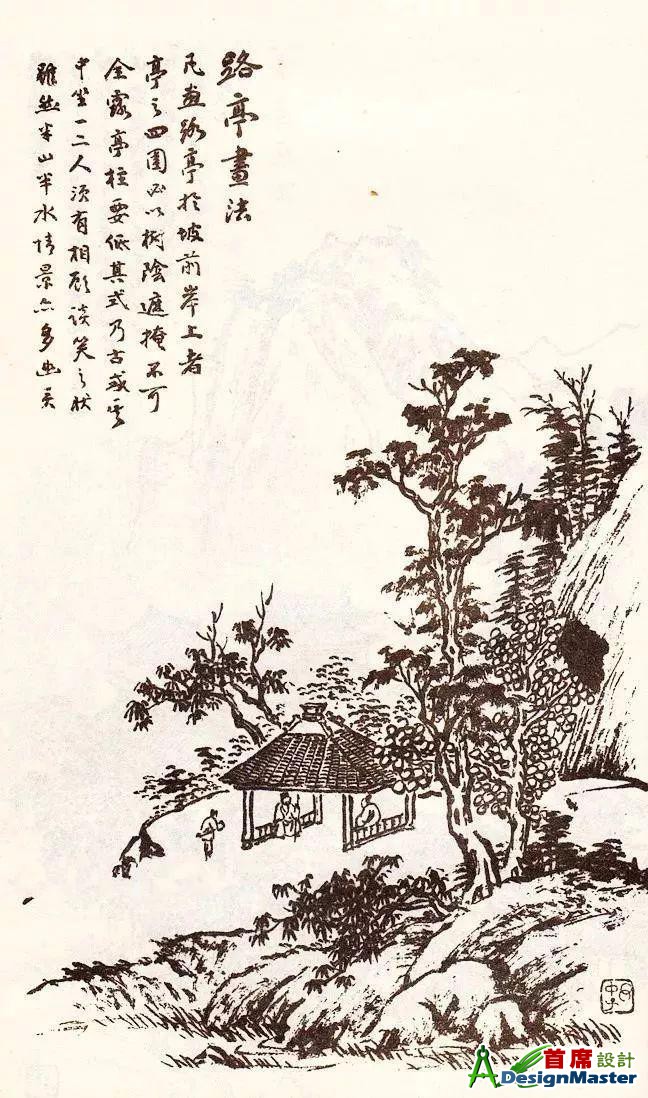 路亭畫法
凡畫路亭於坡前岸上者
亭之四圍必以樹陰遮掩不可
全露亭柱要低其式乃古或於
中坐一二人須有相顧談笑之狀
雖然半山半水情景亦多幽
首席設計
ADesignMaster